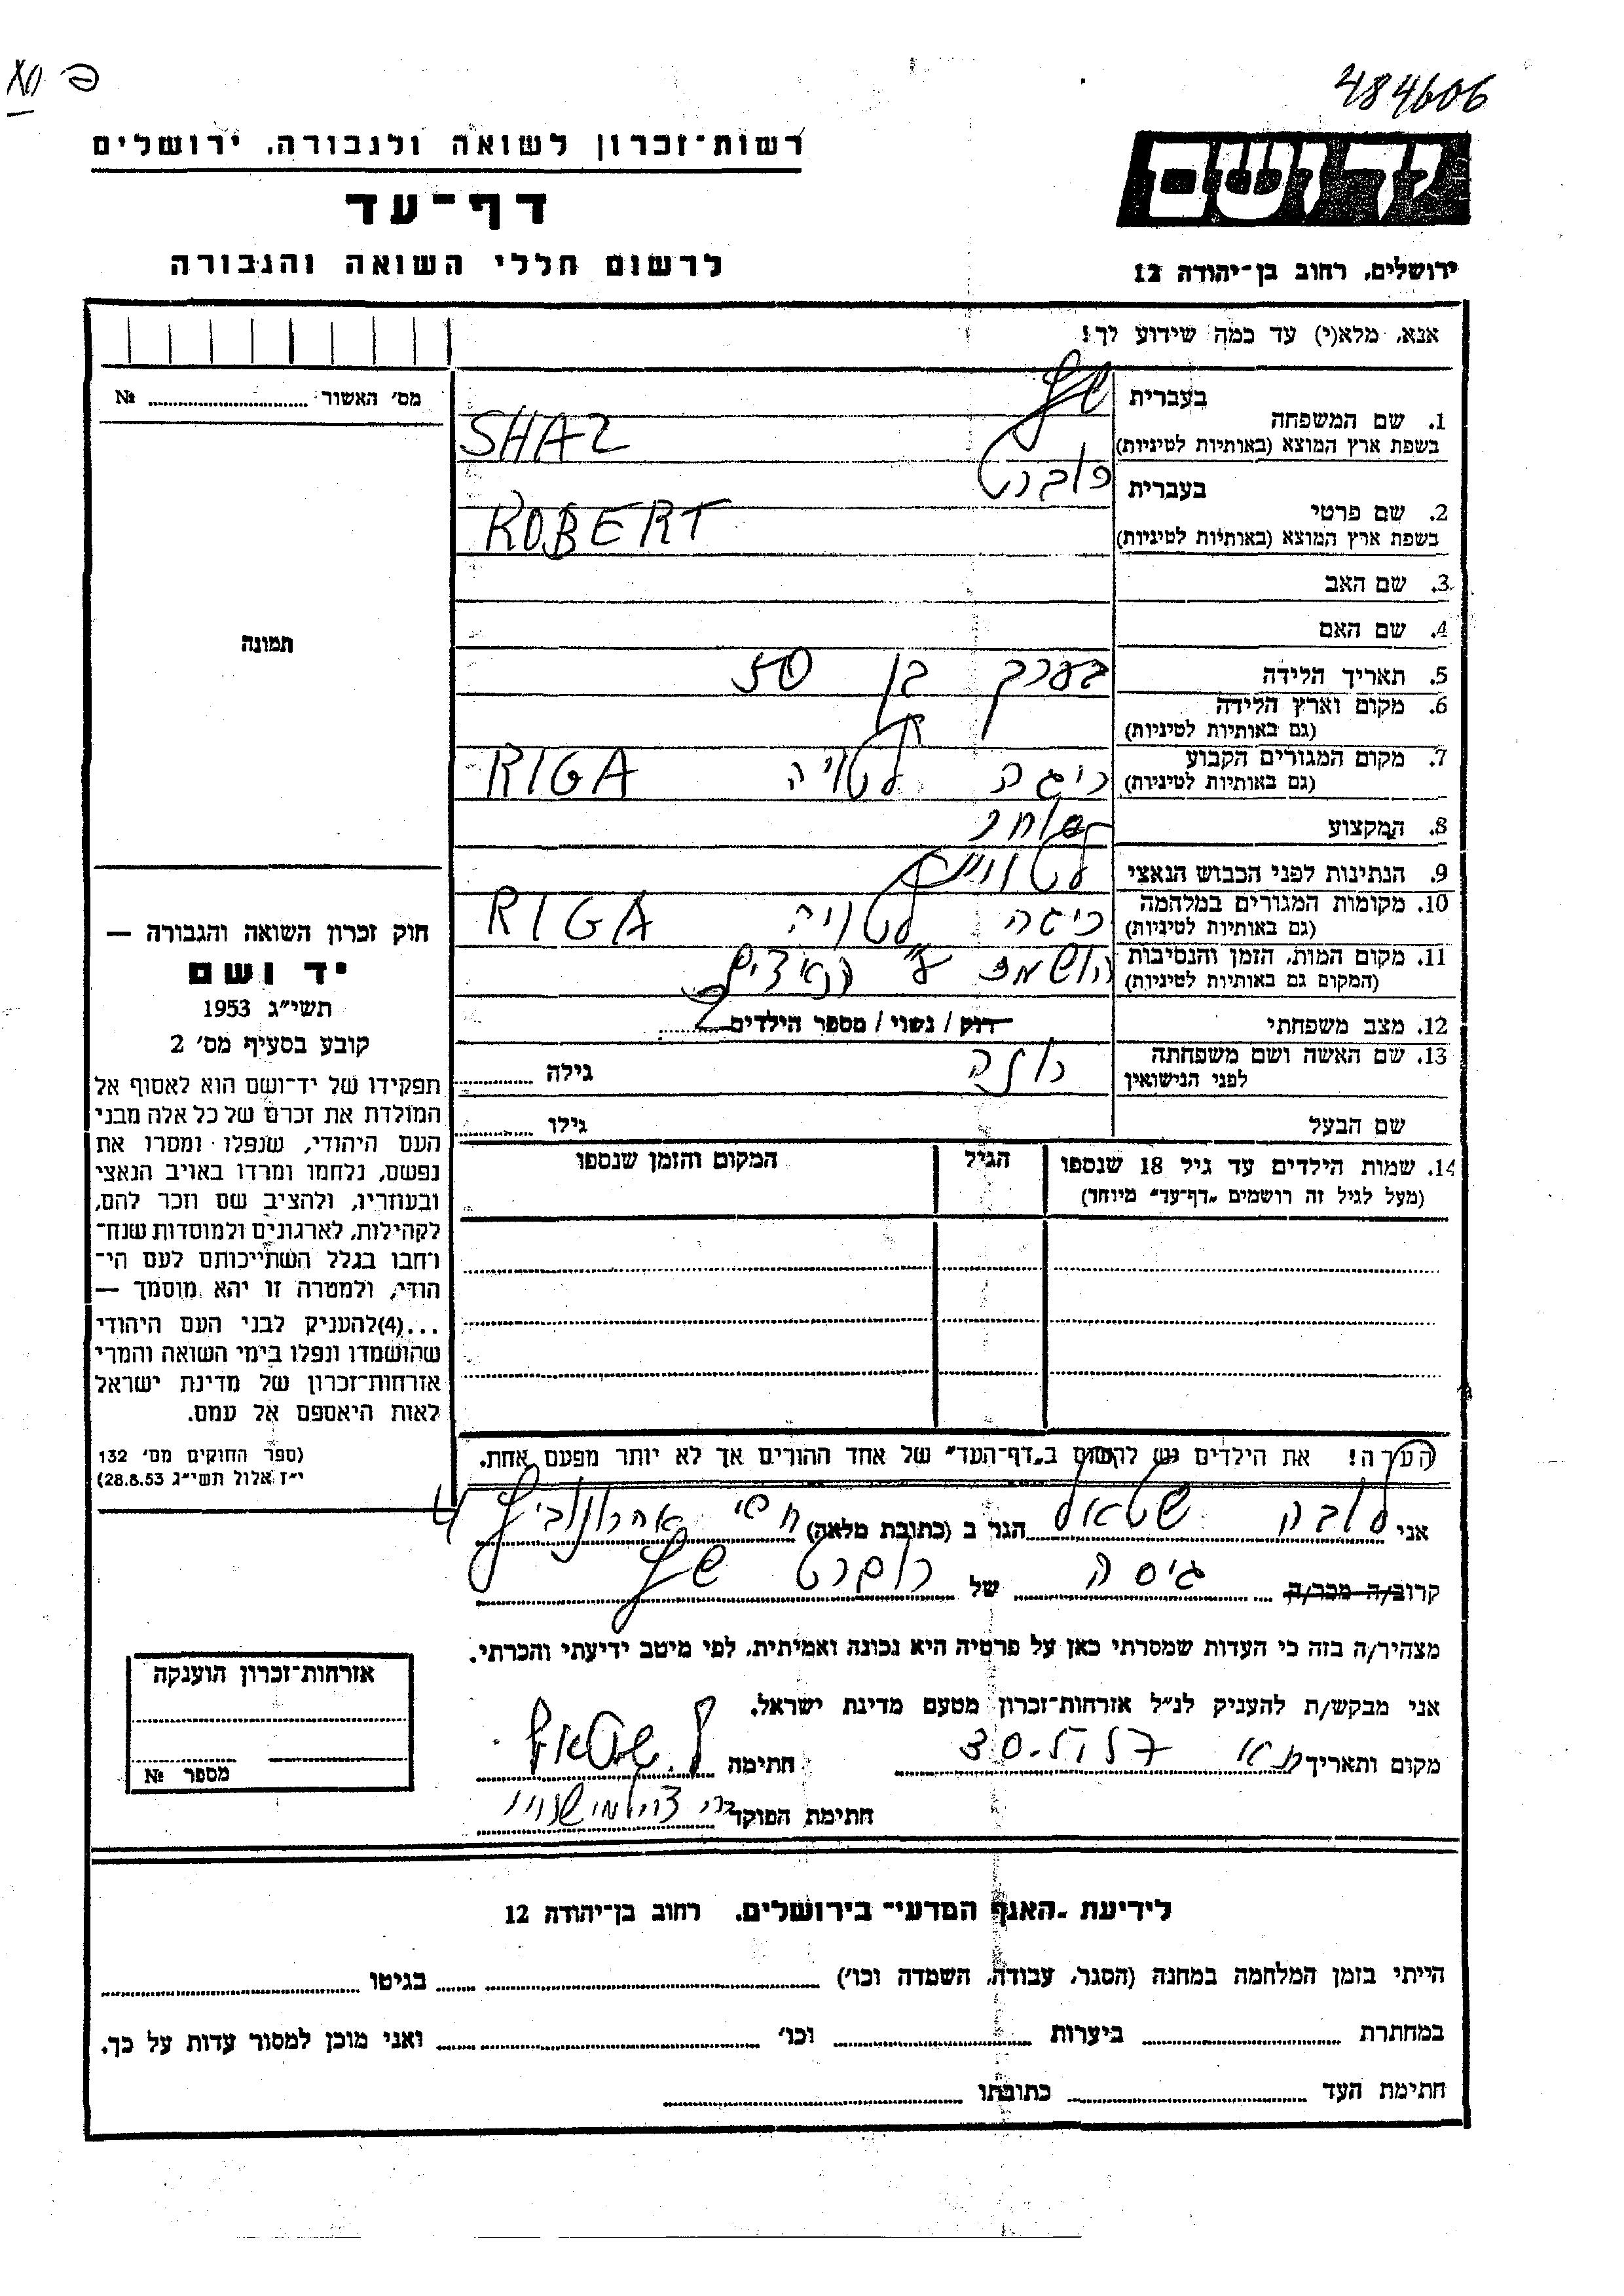 484606
רשות־זכרון לשואה ולגבורה, ירושלים
דף־עד
לרשום חללי השואה והגבורה
יד ושם
ירושלים, רחוב בן־יהודה 12
אנא, מלא(י) עד כמה שידוע לך!
מס׳ האשור № 
1. שם המשפחה
בעברית שץ
בשפת ארץ המוצא (באותיות לטיניות) SHAZ
2. שם פרטי
בעברית רוברט
בשפת ארץ המוצא (באותיות לטיניות) ROBERT
3. שם האב
4. שם האם
תמונה
5. תאריך הלידה בערך בן 50
6. מקום וארץ הלידה
(גם באותיות לטיניות)
7. מקום המגורים הקבוע ריגה לטויה RIGA
(גם באותיות לטיניות)
8. המקצוע סוחר
9. הנתינות לפני הכבוש הנאצי
10. מקומות המגורים במלחמה ריגה לטויה RIGA
(גם באותיות לטיניות)
11. מקום המות, הזמן והנסיבות הושמד ע״י הנאצים
(המקום גם באותיות לטיניות)
12. מצב משפחתי רוק / נשוי / מספר הילדים 2
13. שם האשה ושם משפחתה
לפני הנישואין רוזה גילה
שם הבעל גילו
14. שמות הילדים עד גיל 18 שנספו הגיל המקום והזמן שנספו
(מעל לגיל זה רושמים „דף־עד״ מיוחד)
חוק זכרון השואה והגבורה —
יד ושם
תשי״ג 1953
קובע בסעיף מס׳ 2
תפקידו של יד־ושם הוא לאסוף אל
המולדת את זכרם של כל אלה מבני
העם היהודי, שנפלו ומסרו את
נפשם, נלחמו ומרדו באויב הנאצי
ובעוזריו, ולהציב שם וזכר להם,
לקהילות, לארגונים ולמוסדות שנח־
רחבו בגלל השתייכותם לעם הי־
הודי, ולמטרה זו יהא מוסמך —
...(4)להעניק לבני העם היהודי
שהושמדו ונפלו בימי השואה והמרי
אזרחות־זכרון של מדינת ישראל
לאות היאספם אל עמם.
(ספר החוקים מס׳ 132
י״ז אלול תשי״ג 28.8.53)
הערה! את הילדים יש לרשום ב„דף־העד״ של אחד ההורים אך לא יותר מפעם אחת.
אני לובה שטאל הגר ב (כתובת מלאה) אהרונוביץ 4
קרוב/ה מכר/ה גיסה של רוברט שץ
מצהיר/ה בזה כי העדות שמסרתי כאן על פרטיה היא נכונה ואמיתית, לפי מיטב ידיעתי והכרתי.
אני מבקש/ת להעניק לנ״ל אזרחות־זכרון מטעם מדינת ישראל.
מקום ותאריך ת״א חתימה ל. שטאל
חתימת הפוקד
אזרחות־זכרון הוענקה
מספר №
לידיעת „האגף המדעי״ בירושלים, רחוב בן־יהודה 12
הייתי בזמן המלחמה במחנה (הסגר, עבודה, השמדה וכו׳) בגיטו
במחתרת ביערות וכו׳ ואני מוכן למסור עדות על כך.
חתימת העד כתובתו